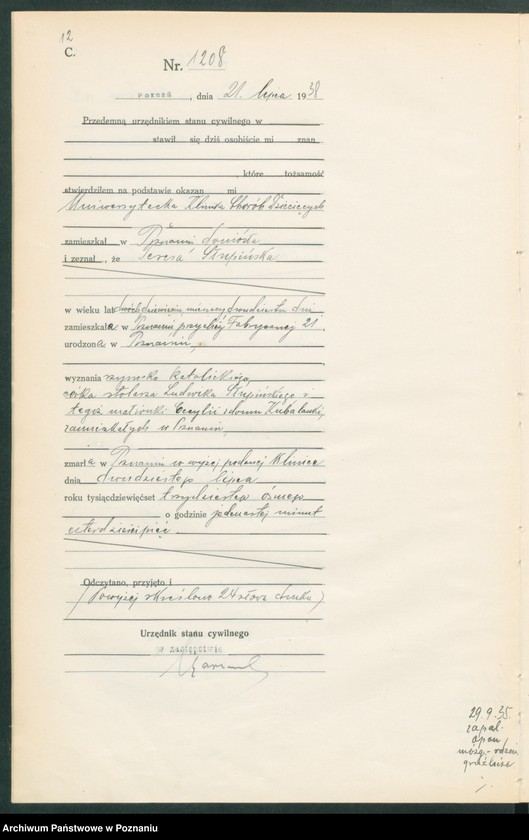 12
C.
Nr. 1208
Poznań, dnia 21. lipca 1938
Przedemną urzędnikiem stanu cywilnego w
stawił się dziś osobiście mi znan
które tożsamość
stwierdziłem na podstawie okazan mi
Uniwersytecka Klinika Chorób Dziecięcych
zamieszkał w Poznaniu doniosła
i zeznał, że Teresa Stupińska
w wieku lat dwóch dziewięciu miesięcy dwudziestu dni
zamieszkała w Poznaniu przy ulicy Fabrycznej 21
urodzona w Poznaniu,
wyznania rzymsko katolickiego,
córka stolarza Ludwika Stupińskiego i
tegoż małżonki Cecylii z domu
zamieszkałych w Poznaniu,
zmarła w Poznaniu w wyżej podanej Klinice
dnia dwudziestego lipca
roku tysiącdziewięćset trzydziestego ósmego
o godzinie jedenastej minut
czterdzieści pięć.
Odczytano, przyjęto i
(Powyżej skreślono 24 słowa druku)
Urzędnik stanu cywilnego
w zastępstwie
29.9.35.
zapal.
opon
mózg.- rdzen.
gruźlicze